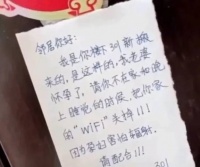 邻居你好:
我是你楼下新搬
来的,是这样的,我老婆
怀孕了,请你不在家和晚
上睡觉的时候,把你家
的"WIFI"关掉!!!
因为孕妇害怕辐射,
请配合!!!